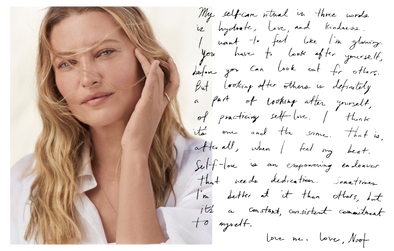 My self-care ritual in three words
is hydrate, love, and kindness.
I want to feel like I'm glowing.
You have to look after yourself,
before you can look out for others.
But looking after others is definitely
a part of looking after yourself,
of practicing self-love. I think
it's one and the same. That is,
after all, when I feel my best.
Self-love is an empowering endeavor
that needs dedication. Sometimes
I'm better at it than others, but
it's a constant, consistent commitment
to myself.
Love me. Love,